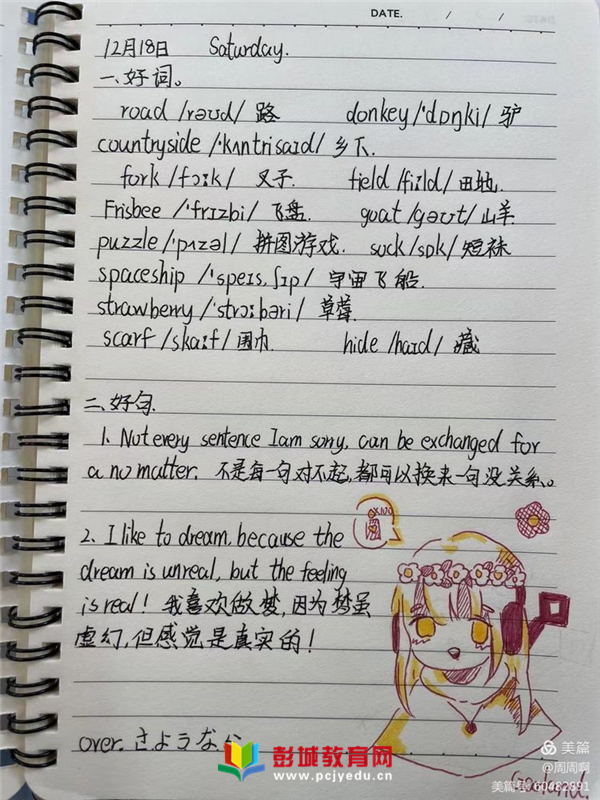 DATE. / /
12月18日 Saturday.
一、好词。
road /rəʊd/ 路 donkey /ˈdɒŋki/ 驴
countryside /ˈkʌntrisaɪd/ 乡下.
fork /fɔːk/ 叉子 field /fiːld/ 田地.
Frisbee /ˈfrɪzbi/ 飞盘. goat /gəʊt/ 山羊
puzzle /ˈpʌzəl/ 拼图游戏. sock /sɒk/ 短袜
spaceship /ˈspeɪs,ʃɪp/ 宇宙飞船.
strawberry /ˈstrɔːbəri/ 草莓
scarf /skaːf/ 围巾 hide /haɪd/ 藏
二、好句.
1. Not every sentence I am sorry, can be exchanged for
a no matter. 不是每一句对不起,都可以换来一句没关系。
2. I like to dream, because the
dream is unreal, but the feeling
is real! 我喜欢做梦,因为梦虽
虚幻,但感觉是真实的!
over. さような
彭城教育网
www.pcjyedu.cn
美篇
@周周啊
美篇号: 60482891